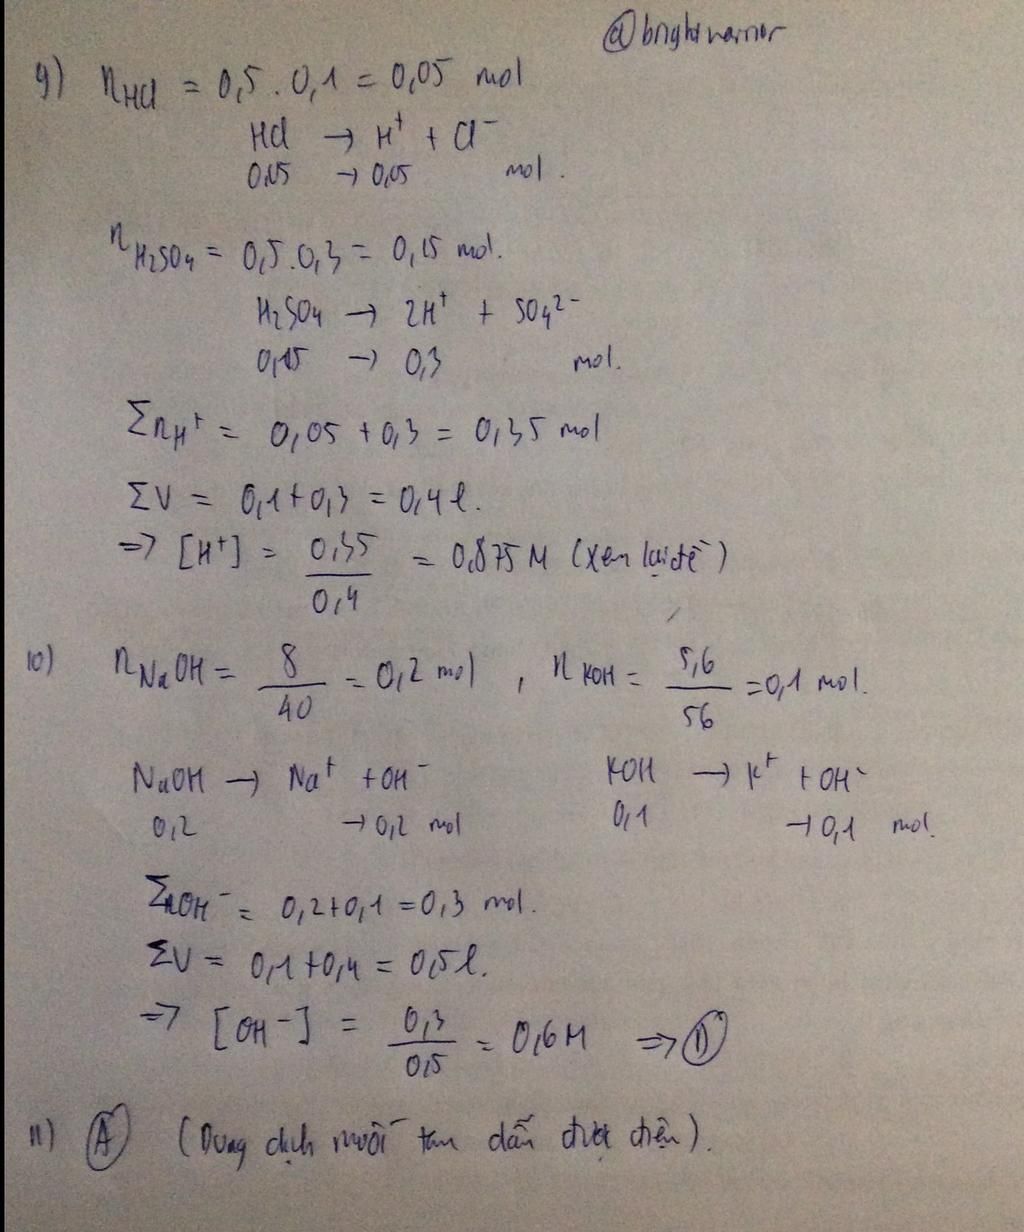 @brightwarrior
9) nHCl = 0,5 . 0,1 = 0,05 mol
HCl → H⁺ + Cl⁻
0,05 → 0,05 mol.
nH₂SO₄ = 0,5.0,3 = 0,15 mol.
H₂SO₄ → 2H⁺ + SO₄²⁻
0,15 → 0,3 mol.
ΣnH⁺ = 0,05 + 0,3 = 0,35 mol
ΣV = 0,1 + 0,3 = 0,4 l.
=> [H⁺] = 0,35 / 0,4 = 0,875 M (xem lại đề)
10) nNaOH = 8 / 40 = 0,2 mol , nKOH = 5,6 / 56 = 0,1 mol.
NaOH → Na⁺ + OH⁻ KOH → K⁺ + OH⁻
0,2 → 0,2 mol 0,1 → 0,1 mol.
ΣnOH⁻ = 0,2 + 0,1 = 0,3 mol.
ΣV = 0,1 + 0,4 = 0,5 l.
=> [OH⁻] = 0,3 / 0,5 = 0,6 M => D
11) A (Dung dịch muối tan dẫn được điện).